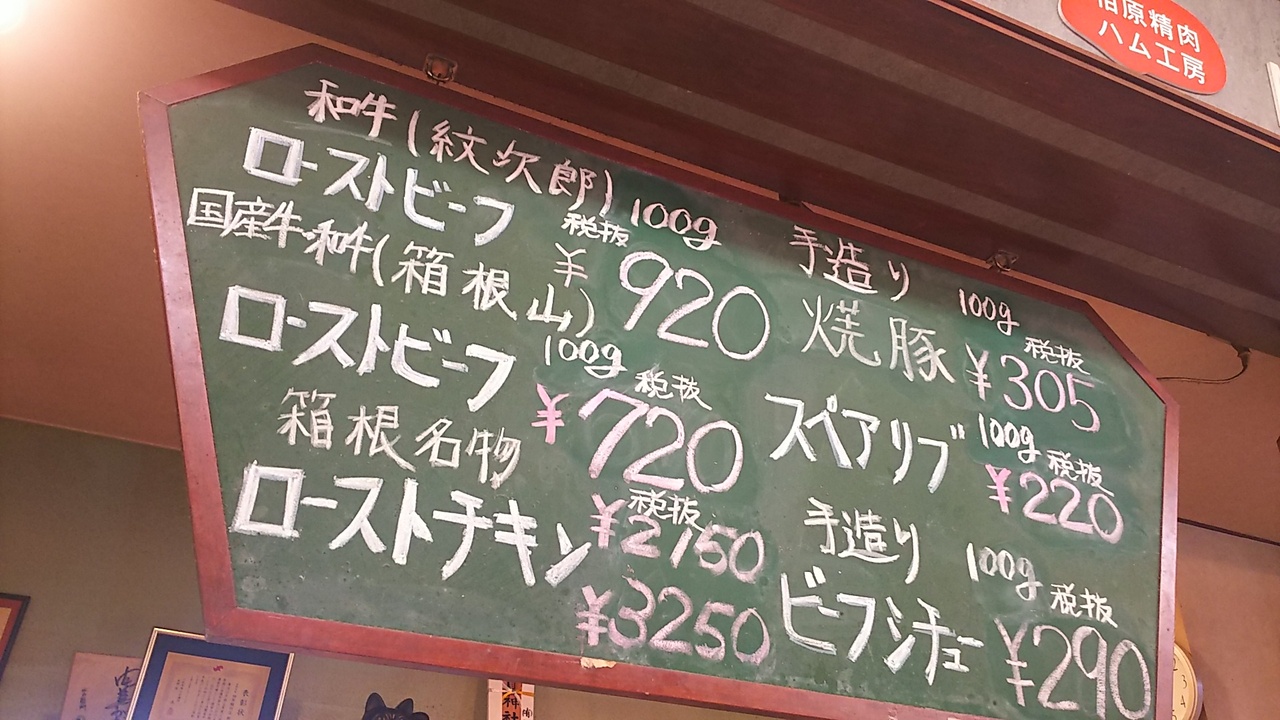 原精肉
ハム工房
和牛(紋次郎)
ローストビーフ
100g
税抜
¥920
国産牛・和牛(箱根山)
ローストビーフ
100g
税抜
¥720
箱根名物
ローストチキン
税抜
¥2150
¥3250
手造り
焼豚
100g
税抜
¥305
スペアリブ
100g
税抜
¥220
手造り
ビーフシチュー
100g
税抜
¥290
表彰状
神社